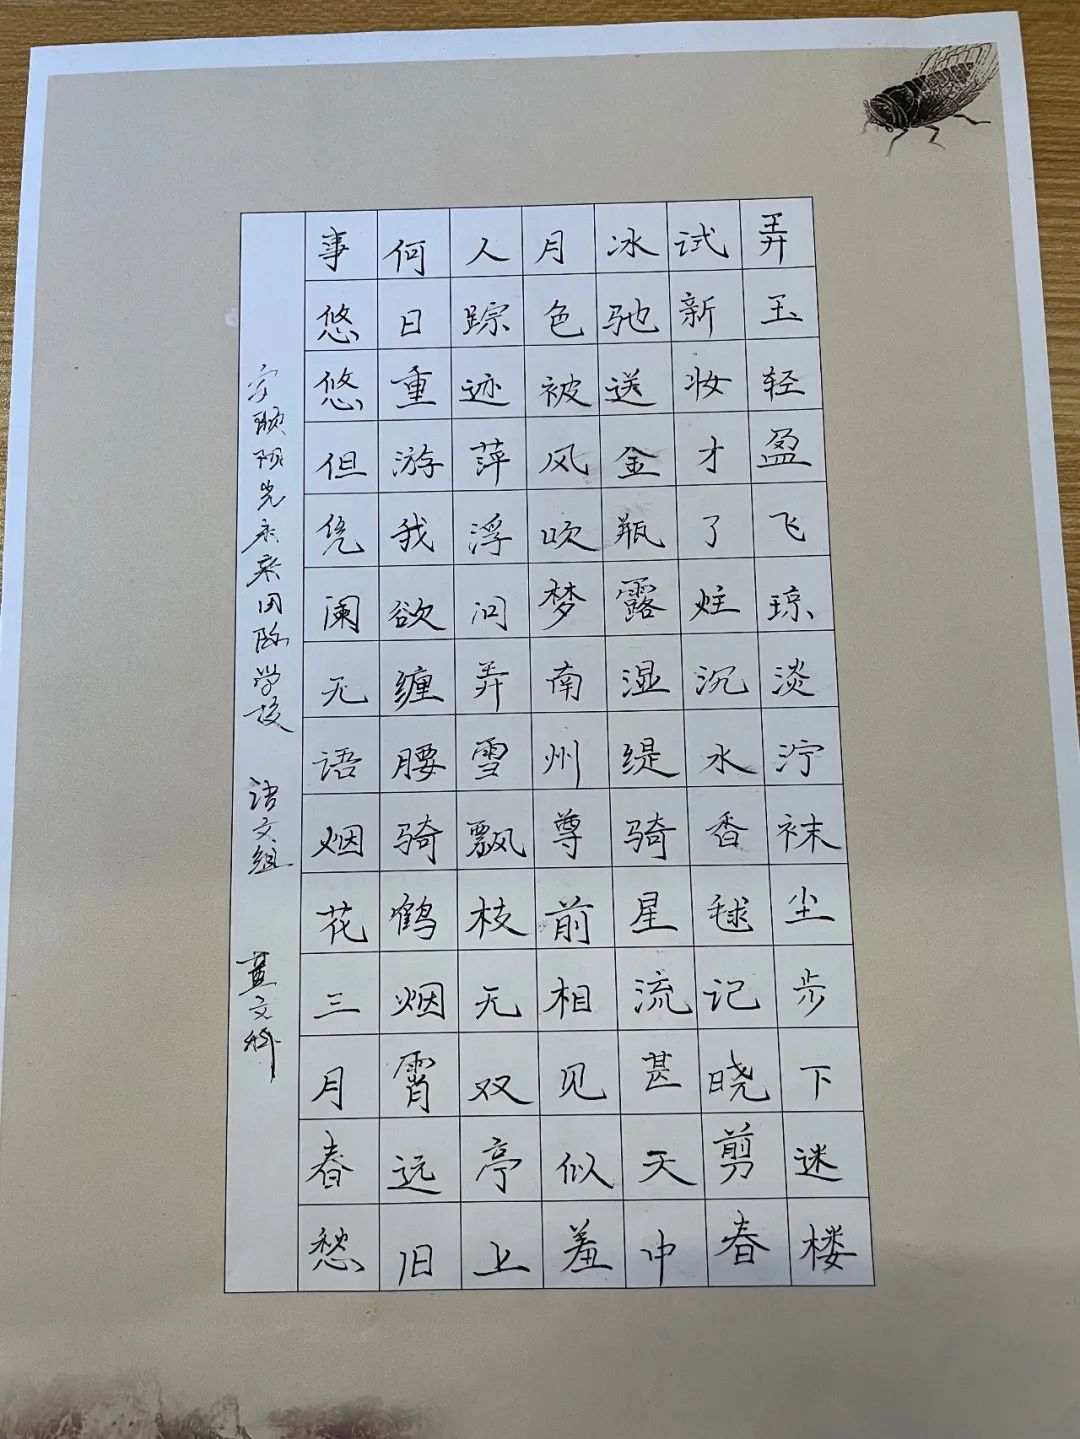 弄玉轻盈飞琼淡泞袜尘步下迷楼
试新妆才了炷沉水香毬记晓剪春
冰驰送金瓶露湿缇骑星流甚天中
月色被风吹梦南州尊前相见似羞
人踪迹萍浮问弄雪飘枝无双亭上
何日重游我欲缠腰骑鹤烟霄远旧
事悠悠但凭阑无语烟花三月春愁
安顺阳光未来国际学校 语文组 董文科